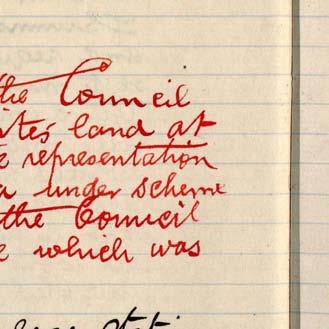 the Council
land at
representation
under scheme
the Council
which was